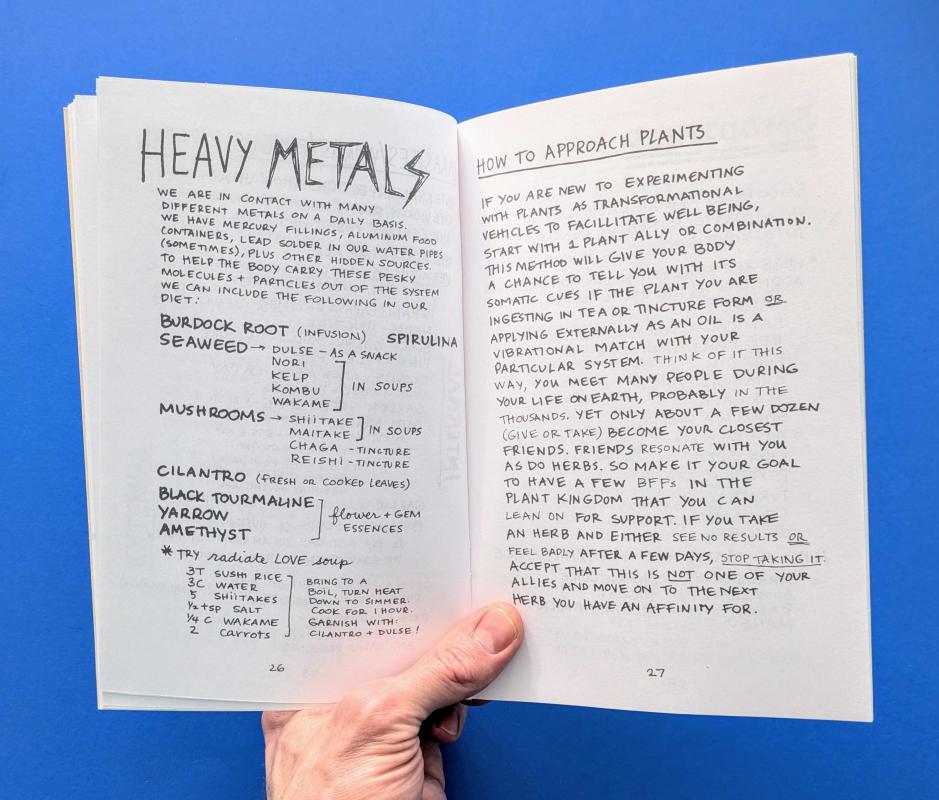 HEAVY METALS
WE ARE IN CONTACT WITH MANY
DIFFERENT METALS ON A DAILY BASIS.
WE HAVE MERCURY FILLINGS, ALUMINUM FOOD
CONTAINERS, LEAD SOLDER IN OUR WATER PIPES
(SOMETIMES), PLUS OTHER HIDDEN SOURCES.
TO HELP THE BODY CARRY THESE PESKY
MOLECULES + PARTICLES OUT OF THE SYSTEM
WE CAN INCLUDE THE FOLLOWING IN OUR
DIET:
BURDOCK ROOT (INFUSION) SPIRULINA
SEAWEED → DULSE - AS A SNACK
NORI
KELP
KOMBU
WAKAME
IN SOUPS
MUSHROOMS → SHIITAKE
MAITAKE
IN SOUPS
CHAGA - TINCTURE
REISHI - TINCTURE
CILANTRO (FRESH OR COOKED LEAVES)
BLACK TOURMALINE
YARROW
AMETHYST
flower + GEM
ESSENCES
* TRY radiate LOVE soup
3T SUSHI RICE
3C WATER
5 SHIITAKES
1/2 tsp SALT
1/4 C WAKAME
2 Carrots
BRING TO A
BOIL, TURN HEAT
DOWN TO SIMMER.
COOK FOR 1 HOUR.
GARNISH WITH:
CILANTRO + DULSE!
26
HOW TO APPROACH PLANTS
IF YOU ARE NEW TO EXPERIMENTING
WITH PLANTS AS TRANSFORMATIONAL
VEHICLES TO FACILLITATE WELL BEING,
START WITH 1 PLANT ALLY OR COMBINATION.
THIS METHOD WILL GIVE YOUR BODY
A CHANCE TO TELL YOU WITH ITS
SOMATIC CUES IF THE PLANT YOU ARE
INGESTING IN TEA OR TINCTURE FORM OR
APPLYING EXTERNALLY AS AN OIL IS A
VIBRATIONAL MATCH WITH YOUR
PARTICULAR SYSTEM. THINK OF IT THIS
WAY, YOU MEET MANY PEOPLE DURING
YOUR LIFE ON EARTH, PROBABLY IN THE
THOUSANDS. YET ONLY ABOUT A FEW DOZEN
(GIVE OR TAKE) BECOME YOUR CLOSEST
FRIENDS. FRIENDS RESONATE WITH YOU
AS DO HERBS. SO MAKE IT YOUR GOAL
TO HAVE A FEW BFFs IN THE
PLANT KINGDOM THAT YOU CAN
LEAN ON FOR SUPPORT. IF YOU TAKE
AN HERB AND EITHER SEE NO RESULTS OR
FEEL BADLY AFTER A FEW DAYS, STOP TAKING IT.
ACCEPT THAT THIS IS NOT ONE OF YOUR
ALLIES AND MOVE ON TO THE NEXT
HERB YOU HAVE AN AFFINITY FOR.
27